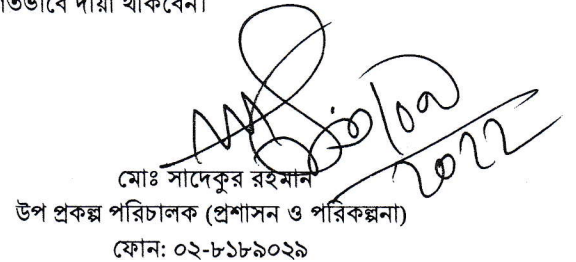 থাকবেন।
মোঃ সাদেকুর রহমান
উপ প্রকল্প পরিচালক (প্রশাসন ও পরিকল্পনা)
ফোন: ০২-৮১৮৯০২৯